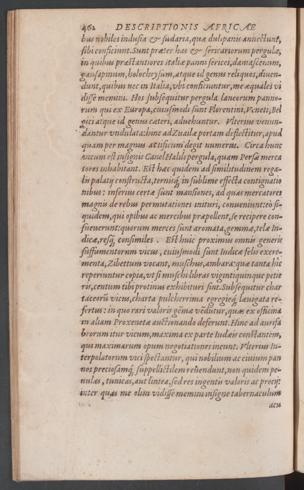 462 DESCRIPTIONIS AFRICAE
bus nobiles indusia & sudaria, quæ dulipanis annectunt,
sibi conficiunt. Sunt præter hæc & sericariorum pergulæ,
in quibus præstantiores italiæ panni serici, damasceni,
gausapinum, holochrysum, atque id genus reliqui, divendunt,
quibus nec in Italia, vbi conficiuntur, me æquales vidisse
memini. Hos subsequitur pergula laneorum pannorum
qui ex Europa, cuiusmodi sunt Florentini, Veneti, Belgici
atque id genus cæteri, aduehuntur. Vlterius venundantur
vndulata: hinc ad Zuaila portam deflectitur, apud
quam per magnus artificum degit numerus. Circa hunc
vicum est insignis Canel Halili pergula, quam Persæ mercatores
inhabitant. Est hæc quidem ad similitudinem regalis
palatij constructa, ternisq; in sublime effecta contignationibus:
inferius certæ sunt mansiones, ad quas mercatores
magnis de rebus permutationes inituri, conueniunt: eò siquidem,
qui opibus ac mercibus præpollent, se recipere consueuerunt:
quorum merces sunt aromata, gemmæ, telæ Indicæ,
resq; consimiles. Est huic proximus omnis generis
suffumentorum vicus, cuiusmodi sunt Indiæ felis excrementa,
Zibettum vocant, muschus, ambara: quæ tanta hic
reperiuntur copia, vt si moschi libras vigintiquinque petieris,
centum tibi protinus exhibituri sint. Subsequitur chartaceorū
vicus, charta pulcherrima egregieq; lauigata refertus:
in quo rari valoris gēmæ vēduntur, quas ex officina
in aliam Proxeneta auctionando deferunt. Hinc ad aurifabrorum
itur vicum, maxima ex parte Iudæis constantem,
qui maximarum opum negotiationes ineunt. Vlterius Interpolatorum
vici spectantur, qui nobilium ac ciuium pannos
preciosamq; suppellectilem reuendunt, non quidem penulas,
tunicas, aut lintea, sed res ingentis valoris ac precij:
inter quas me olim vidisse memini insigne tabernaculum
acu